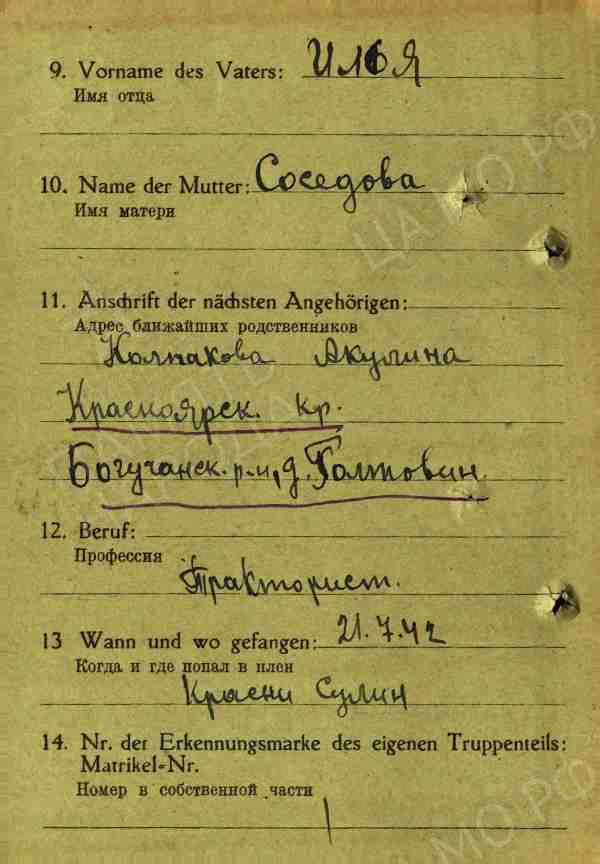 9. Vorname des Vaters: Илья
Имя отца
10. Name der Mutter: Соседова
Имя матери
11. Anschrift der nächsten Angehörigen:
Адрес ближайших родственников
Колпакова Акулина
Красноярск. кр.
Богучанск. р-н, д. Гольтовин.
12. Beruf:
Профессия
Тракторист.
13 Wann und wo gefangen: 21.7.42
Когда и где попал в плен
Красни Сулин
14. Nr. der Erkennungsmarke des eigenen Truppenteils:
Matrikel-Nr.
Номер в собственной части
ЦА МО РФ
МО РФ